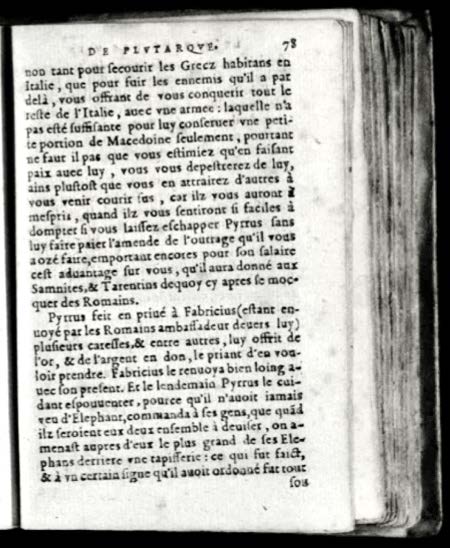 DE PLVTARQVE. 78
non tant pour secourir les Grecz habitans en
Italie, que pour fuir les ennemis qu'il a par
delà, vous offrant de vous conquerir tout le
reste de l'Italie, auec vne armee: laquelle n'a
pas esté suffisante pour luy conseruer vne peti-
te portion de Macedoine seulement, pourtant
ne faut il pas que vous estimiez qu'en faisant
paix auec luy, vous vous depestrerez de luy,
ains plustost que vous en attrairez d'autres à
vous venir courir sus, car ilz vous auront à
mespris, quand ilz vous sentiront si faciles à
dompter si vous laissez eschapper Pyrrus sans
luy faire paier l'amende de l'outrage qu'il vous
a ozé faire, emportant encores pour son salaire
cest aduantage sur vous, qu'il aura donné aux
Samnites, & Tarentins dequoy cy apres se moc-
quer des Romains.
Pyrrus feit en priué à Fabricius (estant en-
uoyé par les Romains ambassadeur deuers luy)
plusieurs caresses, & entre autres, luy offrit de
l'or, & de l'argent en don, le priant d'en vou-
loir prendre. Fabricius le renuoya bien loing a-
uec son present. Et le lendemain Pyrrus le cui-
dant espouuenter, pource qu'il n'auoit iamais
veu d'Elephant, commanda à ses gens, que quãd
ilz seroient eux deux ensemble à deuiser, on a-
menast aupres d'eux le plus grand de ses Ele-
phans derriere vne tapisserie: ce qui fut faict,
& à vn certain signe qu'il auoit ordonné fut tout
sou